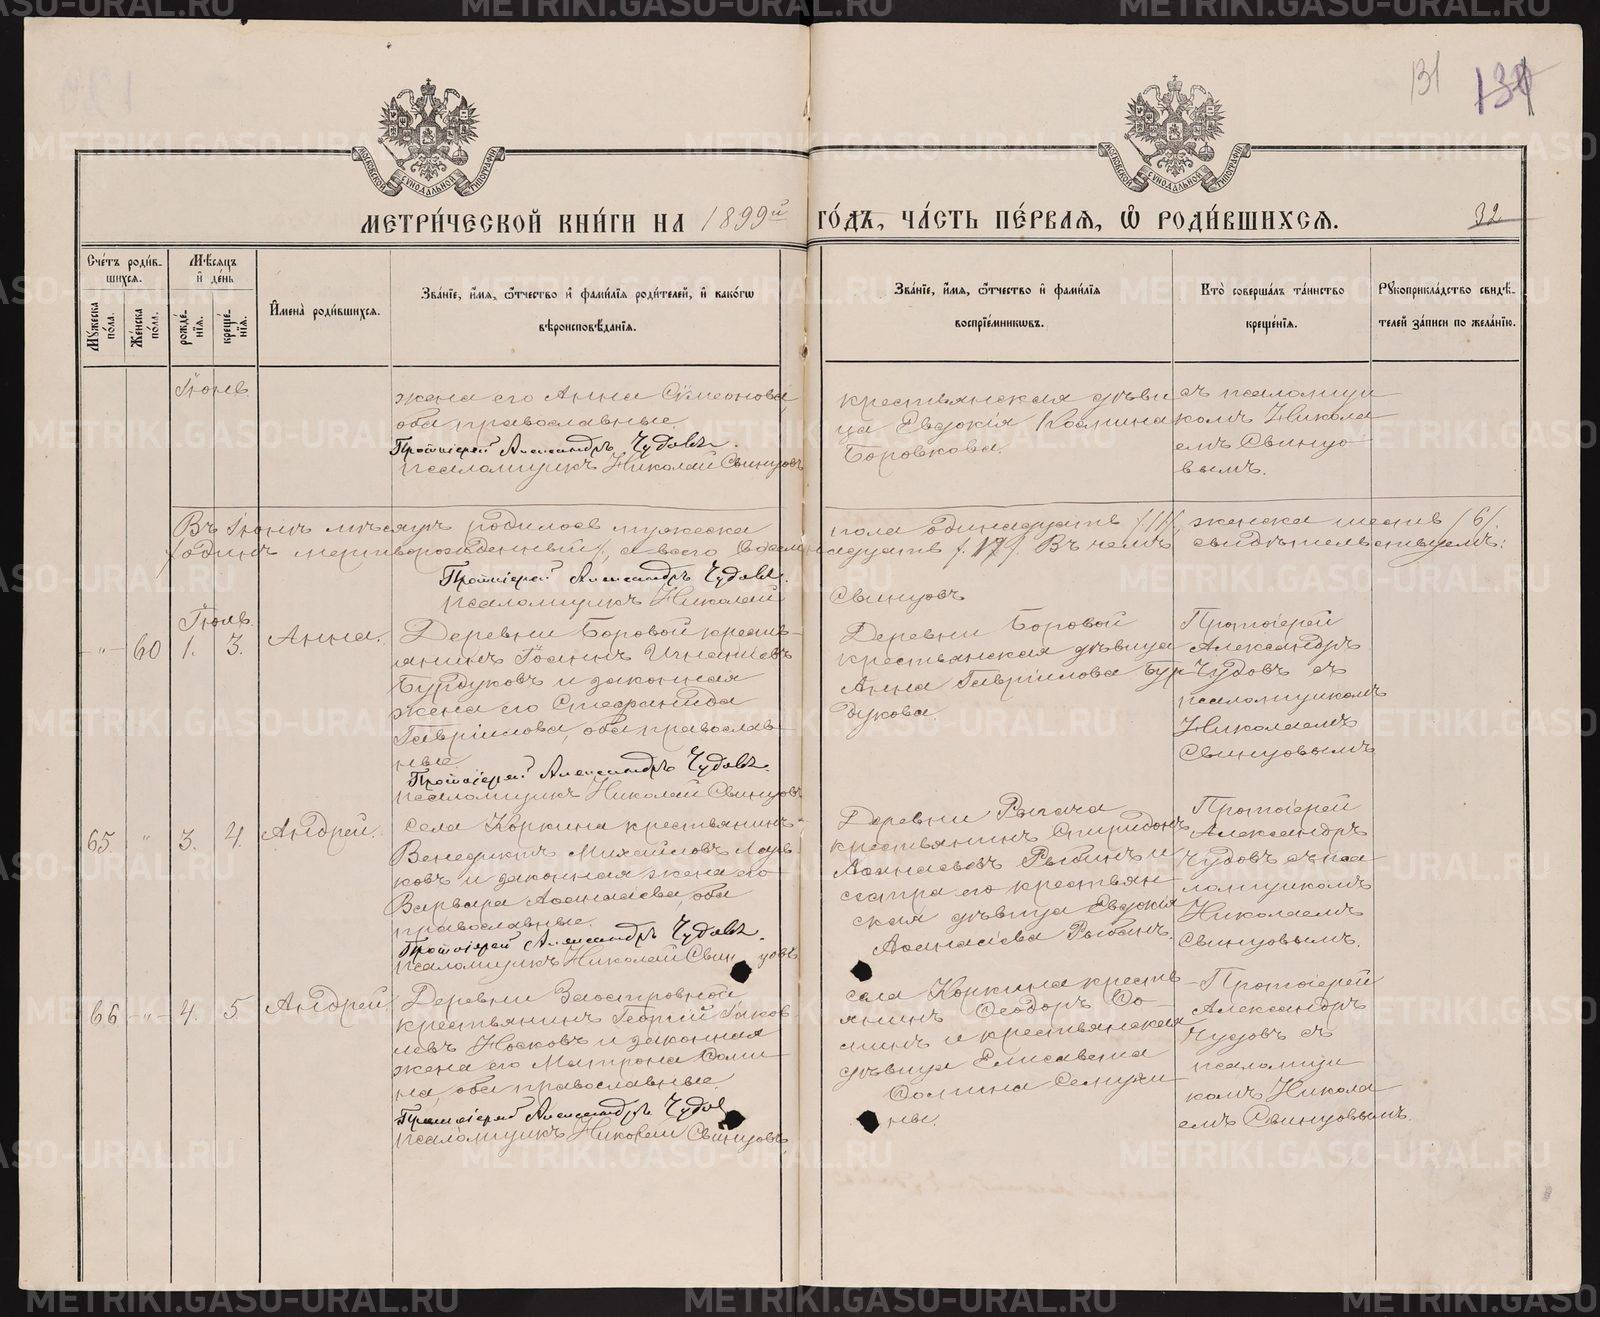 131
МЕТРИ́ЧЕСКОЙ КНИ́ГИ НА 1899й ГО́ДЪ, ЧА́СТЬ ПЕ́РВАЯ, Ѡ РОДИ́ВШИХСЯ.
32
Сче́тъ роди́в-
шихся.
Мꙋ́жеска по́ла.
Же́нска по́ла.
Мѣ́сяцъ
и де́нь
рожде́-
нія.
креще́-
нія.
Имена̀ роди́вшихся.
Зва́ніе, и́мя, ѻ́тчество и фами́лія роди́телей, и како́гѡ
вѣроисповѣ́данія.
Зва́ніе, и́мя, ѻ́тчество и фами́лія
воспріе́мникѡвъ.
Кто̀ соверша́лъ та́инство
креще́нія.
Рꙋкоприкла́дство свидѣ́-
телей за́писи по жела́нію.
Іюнь
жена его Анна Симеонова,
оба православные.
Протоіерей Александръ Чудовъ.
псаломщикъ Николай Свинцовъ
крестьянская дѣви
ца Евдокія
Боровкова.
съ псаломщи
комъ Никола
емъ Свинцо
вымъ.
Въ Іюнѣ мѣсяцѣ родилось мужеска пола одинадцать /11/, женска шесть /6/.
/одинъ мертворожденный/, а всего семнадцать /17/. Въ чемъ свидѣтельствуемъ:
Протоіерей Александръ Чудовъ.
псаломщикъ Николай Свинцовъ
Іюль
" 60 1. 3. Анна.
Деревни Боровой крестья-
янинъ Іоаннъ Игнатіевъ
Бурдуковъ и законная
жена его Стефанида
Гавріилова, оба православ-
ные.
Протоіерей Александръ Чудовъ.
псаломщикъ Николай Свинцовъ
Деревни Боровой
крестьянская дѣвица
Анна Гавріилова Бур
дукова.
Протоіерей
Александръ
Чудовъ съ
псаломщикомъ
Николаемъ
Свинцовымъ
65 " 3. 4. Андрей.
села Коркина крестьянинъ
Венедиктъ Михайловъ
ковъ и законная жена его
Варвара Аѳанасіева, оба
православные.
Протоіерей Александръ Чудовъ.
псаломщикъ Николай Свинцовъ
Деревни Рычача
крестьянинъ Спиридонъ
Аѳанасьевъ Рыбинъ и
сестра его крестьян-
ская дѣвица Евдокія
Аѳанасіева Рыбинъ.
Протоіерей
Александръ
Чудовъ съ пса
ломщикомъ
Николаемъ
Свинцовымъ.
66 " 4. 5 Андрей.
Деревни Заостровной
крестьянинъ Георгій Іаков
левъ Носковъ и законная
жена его Матрона Ѳоми
на, оба православные.
Протоіерей Александръ Чудов
псаломщикъ Николай Свинцовъ
села Коркина кресть
янинъ Ѳеодоръ Ѳо-
минъ и крестьянская
дѣвица Елисавета
Ѳомина Семухи
ны.
Протоіерей
Александръ
Чудовъ съ
псаломщи
комъ Никола
емъ Свинцовымъ.
METRIKI.GASO-URAL.RU